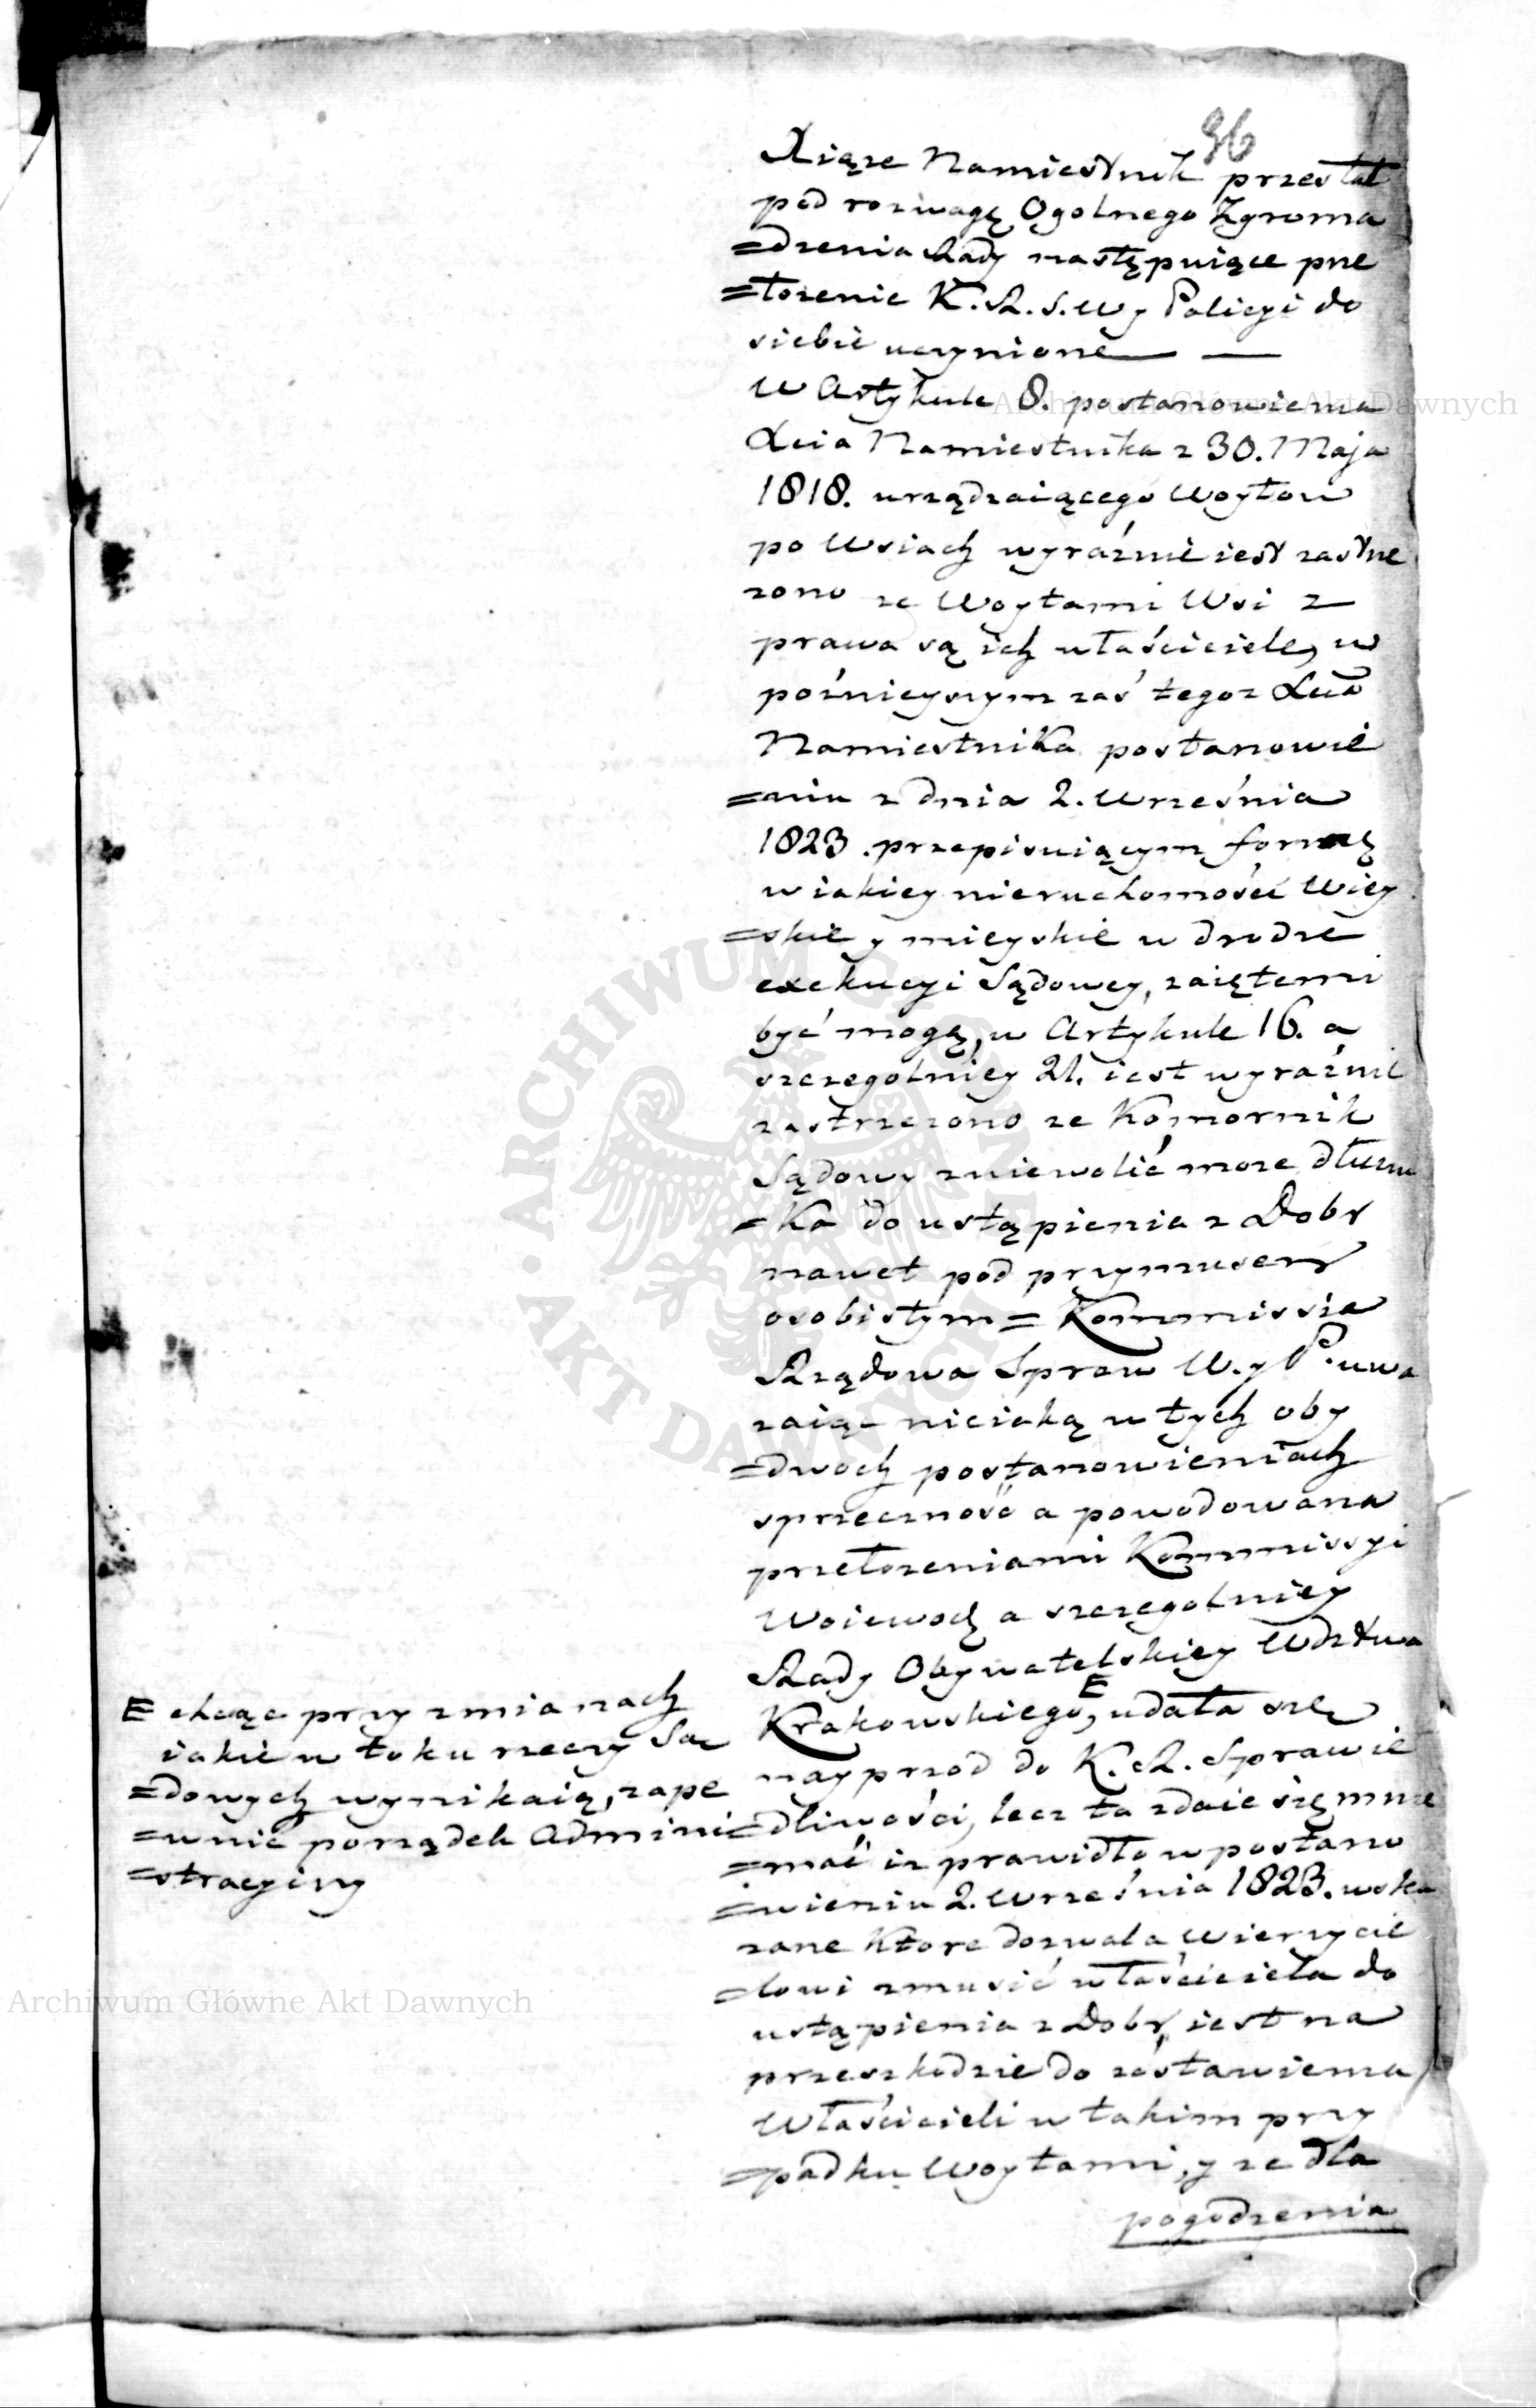 96
Xiąze Namiestnik przesłał
pod rozwagę Ogolnego Zgroma
=dzenia Rady następuiące prze
=łozenie K. R. S. W y Policyi do
siebie uczynione —
W Artykule 8. postanowienia
Xcia Namiestnika z 30. Maja
1818. urządzaiącego Woytow
po Wsiach wyraźnie iest zastrze
zono ze Woytami Wsi z
prawa są ich właściciele, w
poźnieyszym zaś tegoz Xcia
Namiestnika postanowie
=niu z dnia 2. Września
1823. przepisuiącym formę
w iakiey nieruchomości Wiey
=skie y mieyskie w drodze
exekucyi Sądowey, zaiętemi
być mogą, w Artykule 16. a
szczegolniey 21. iest wyraźnie
zastrzezono ze Komornik
Sądowy zniewolić moze dłuzni
=ka do ustąpienia z Dobr
nawet pod przymusem
osobistym = Kommissia
Rządowa Spraw W. y P. uwa
zaiąc nieiaką w tych oby
=dwoch postanowieniach
sprzeczność a powodowana
przełozeniami Kommissyi
Woiewodz a szczegolniey
Rady Obywatelskiey Wdztwa
Krakowskiego, E udała się
nayprzod do K. R. Sprawie
=dliwości, lecz ta zdaie się mnie
=mać iz prawidło w postano
=wieniu 2. Września 1823. wska
zane ktore dozwala Wierzycie
=lowi zmusić właściciela do
ustąpienia z Dobr, iest na
przeszkodzie do zostawienia
Właścicieli w takim przy
=padku Woytami, y ze dla
pogodzenia
E chcąc przy zmianach
iakie w toku rzeczy Są
=dowych wynikaią, zape
=wnić porządek Admini
=stracyiny
Archiwum Główne Akt Dawnych
Archiwum Główne Akt Dawnych
ARCHIWUM GŁÓWNE AKT DAWNYCH